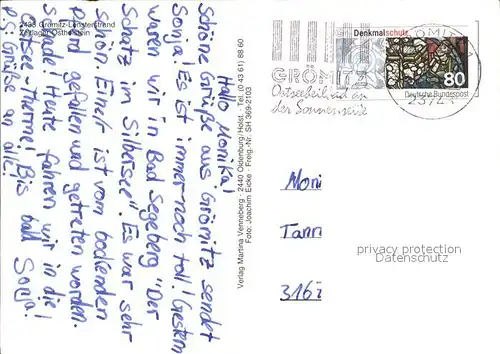 2433 Grömitz-Lensterstrand
Zeltlager Ostholstein
Hallo Monika!
Schöne Grüße aus Grömitz sendet
Sonja! Es ist immernoch toll! Gestern
waren wir in Bad Segeberg "Der
Schatz im Silbersee". Es war sehr
schön. Einer ist vom bockenden
Pferd gefallen und getreten worden.
Schade! Heute fahren wir in die
Ostsee-Therme! Bis bald Sonja!
P.S: Grüße an alle!
Verlag Martina Venneberg · 2440 Oldenburg/Holst. · Tel. (0 43 61) 88 60
Foto: Joachim Eicke · Freig.-Nr. SH 369-2103
GRÖMITZ
Ostseeheilbad an
der Sonnenseite
Denkmalschutz
80
Deutsche Bundespost
GRÖMITZ
2374
Moni
Tann
316
privacy protection
Datenschutz